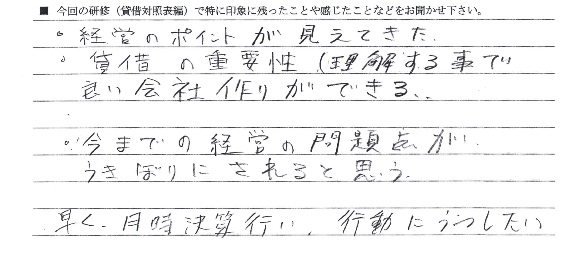 ■ 今回の研修（貸借対照表編）で特に印象に残ったことや感じたことなどをお聞かせ下さい。
・経営のポイントが見えてきた
・貸借の重要性（理解する事で
良い会社作りができる..
・今までの経営の問題点が
うきぼりにされると思う.
早く、月時決算行い、行動にうつしたい